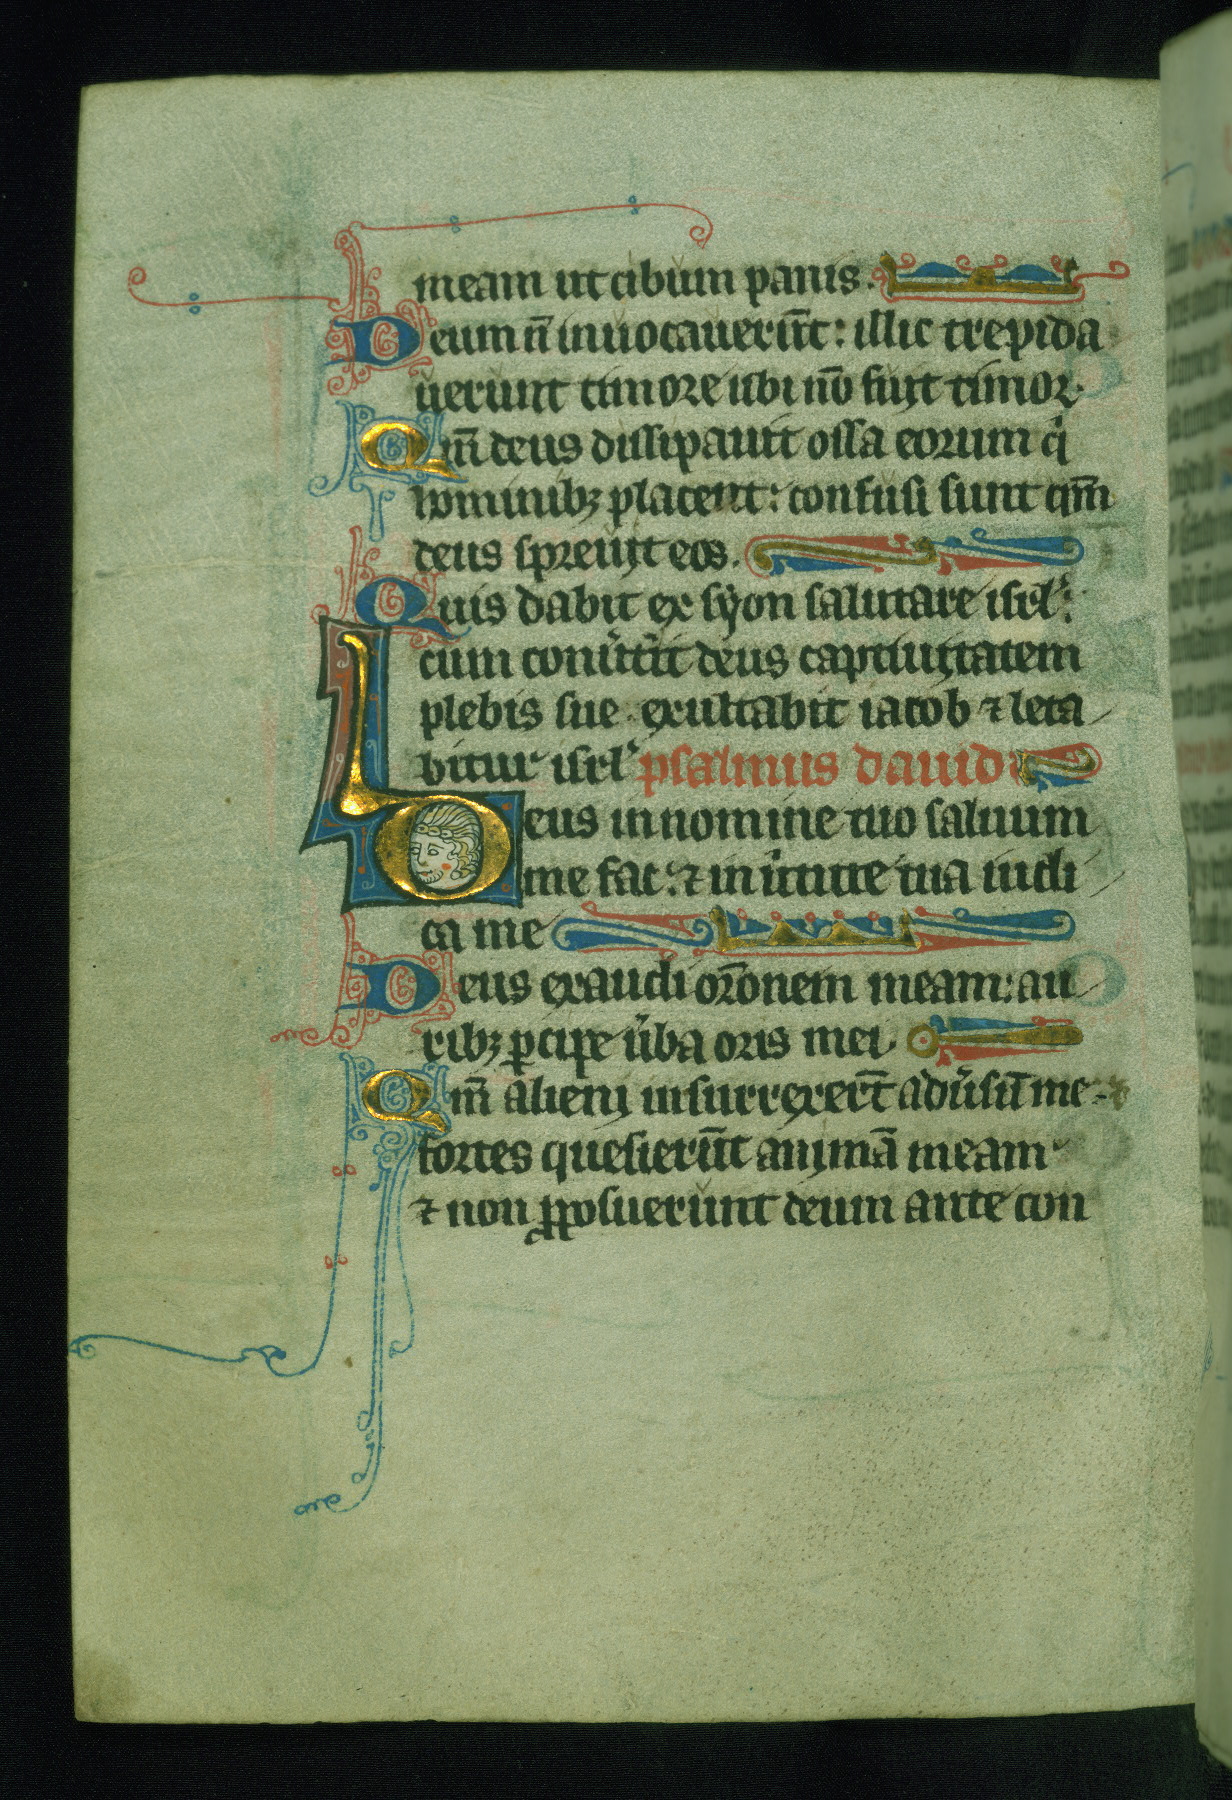 meam ut cibum panis.
Deum n̄ inuocauerūt: illic trepida
uerunt timore ubi nō fuit timor.
Qm̄ deus dissipauit ossa eorum qͥ
hominibꝫ placent: confusi sunt qm̄
deus spreuit eos.
Quis dabit ex syon salutare isrl̓:
cum conu̓tit̓ deus captiuitatem
plebis sue exultabit iacob ⁊ leta
bitur isrl̓ psalmus dauid
Deus in nomine tuo saluum
me fac: ⁊ in u̓tute tua iudi
ca me
Deus exaudi or̄onem meam: au
ribꝫ ꝑcipe u̓ba oris mei
Qm̄ alieni insurrexer̄t adu̓sū me ⁊
fortes quesierūt animā meam
⁊ non ꝓposuerunt deum ante con